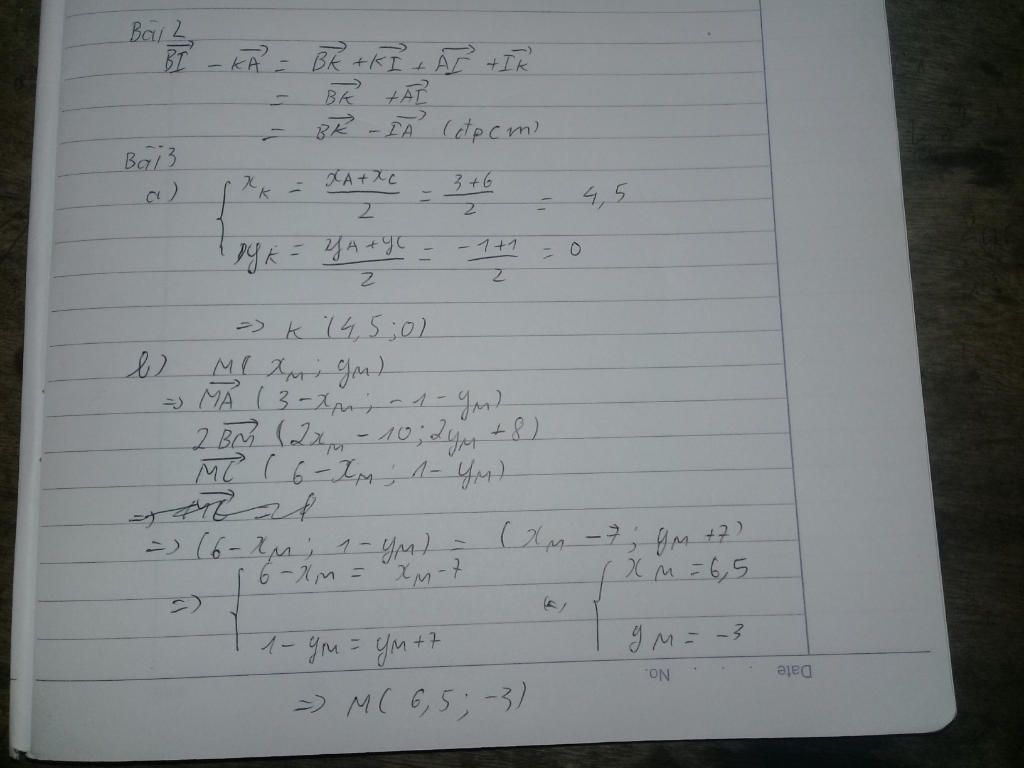 Bài 2
BI→ - KA→ = BK→ + KI→ + AI→ + IK→
= BK→ + AI→
= BK→ - IA→ (đpcm)
Bài 3
a) { x_K = (x_A + x_C)/2 = (3+6)/2 = 4,5
y_K = (y_A + y_C)/2 = (-1+1)/2 = 0
=> K (4,5 ; 0)
b) M( x_M ; y_M)
=> MA→ (3 - x_M ; -1 - y_M)
2BM→ (2x_M - 10 ; 2y_M + 8)
MC→ ( 6 - x_M ; 1 - y_M)
=> (6 - x_M ; 1 - y_M) = (x_M - 7 ; y_M + 7)
=> { 6 - x_M = x_M - 7 { x_M = 6,5
1 - y_M = y_M + 7 y_M = -3
Date No.
=> M( 6,5 ; -3)